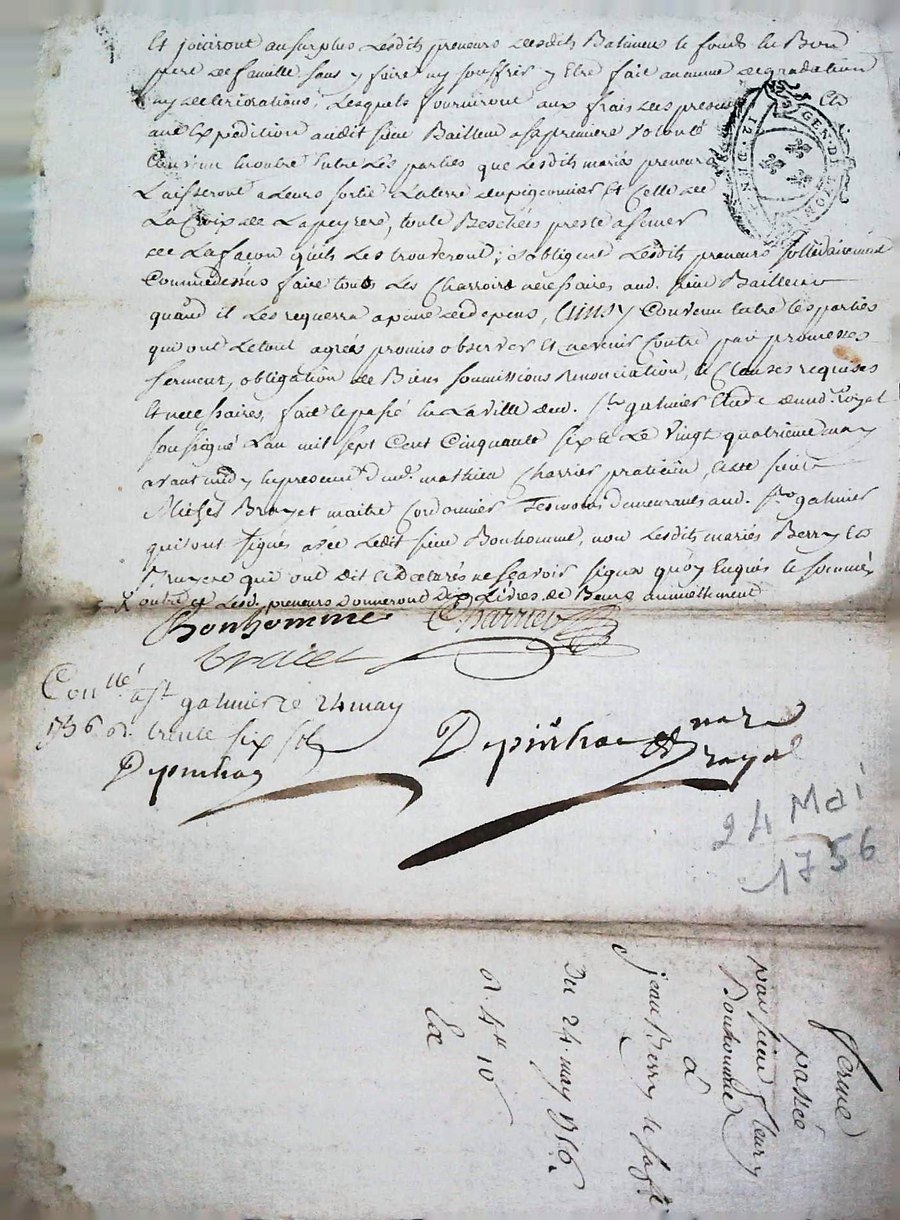 Et jouiront au surplus lesdits preneurs desdits Batimens le fonds en Bon
pere de famille sans y faire ny souffrir y Etre fait aucune degradation
ny deteriorations, Lesquels fourniront aux frais des presentes
une Expédition audit sieur Bailleur a sa premiere volonté
Convenu Entre Les parties que Lesdits mariés preneurs
Laisseront a Leurs sortie La terre du pigeonnier Et Celle de
La Croix de Lapeyrere, toute Beschées preste a semer
de La façon qu'ils Les trouveront; s'obligent Lesdits preneurs sollidairement
Comme dessus faire touts Les Charroirs necessaires aud. sieur Bailleur
quand il Les requerra a peine de depens, Ainsy Convenu Entre Les parties
qui ont Le tout agréés promis observer Et ne venir Contre par promesses
serment, obligation de Biens soumissions Renonciation, & Clauses requises
Et necessaires, fait & passé En La ville de St galmier Etude du nd. Royal
soussigné L'an mil sept Cent Cinquante six & Le vingt quatrieme may
avant midy En presence de mathieu Charrier praticien, & de sieur
Michel Brayet maitre Cordonnier Temoins demeurants aud. St galmier
qui ont signés avec Ledit sieur Bonhomme, non Lesdits mariés Berry Et
qui ont dit & declarés ne sçavoir signer de quoy Enquis & sommés
outre ce Lesd. preneurs Donneront Dix Livres de Beurre annuellement
Bonhomme Charrier
Brayet
Conllé a St galmier ce 24 may
1756 R. trente six sols
Depinhac
Depinhac nore
royal
24 Mai
1756
GEN. DE LYON
Ferme
passée
par sieur fleury
Bonhomme
à
jean Berry & sa fe.
Du 24 may 1756.
R. 4tt 10s
Ex